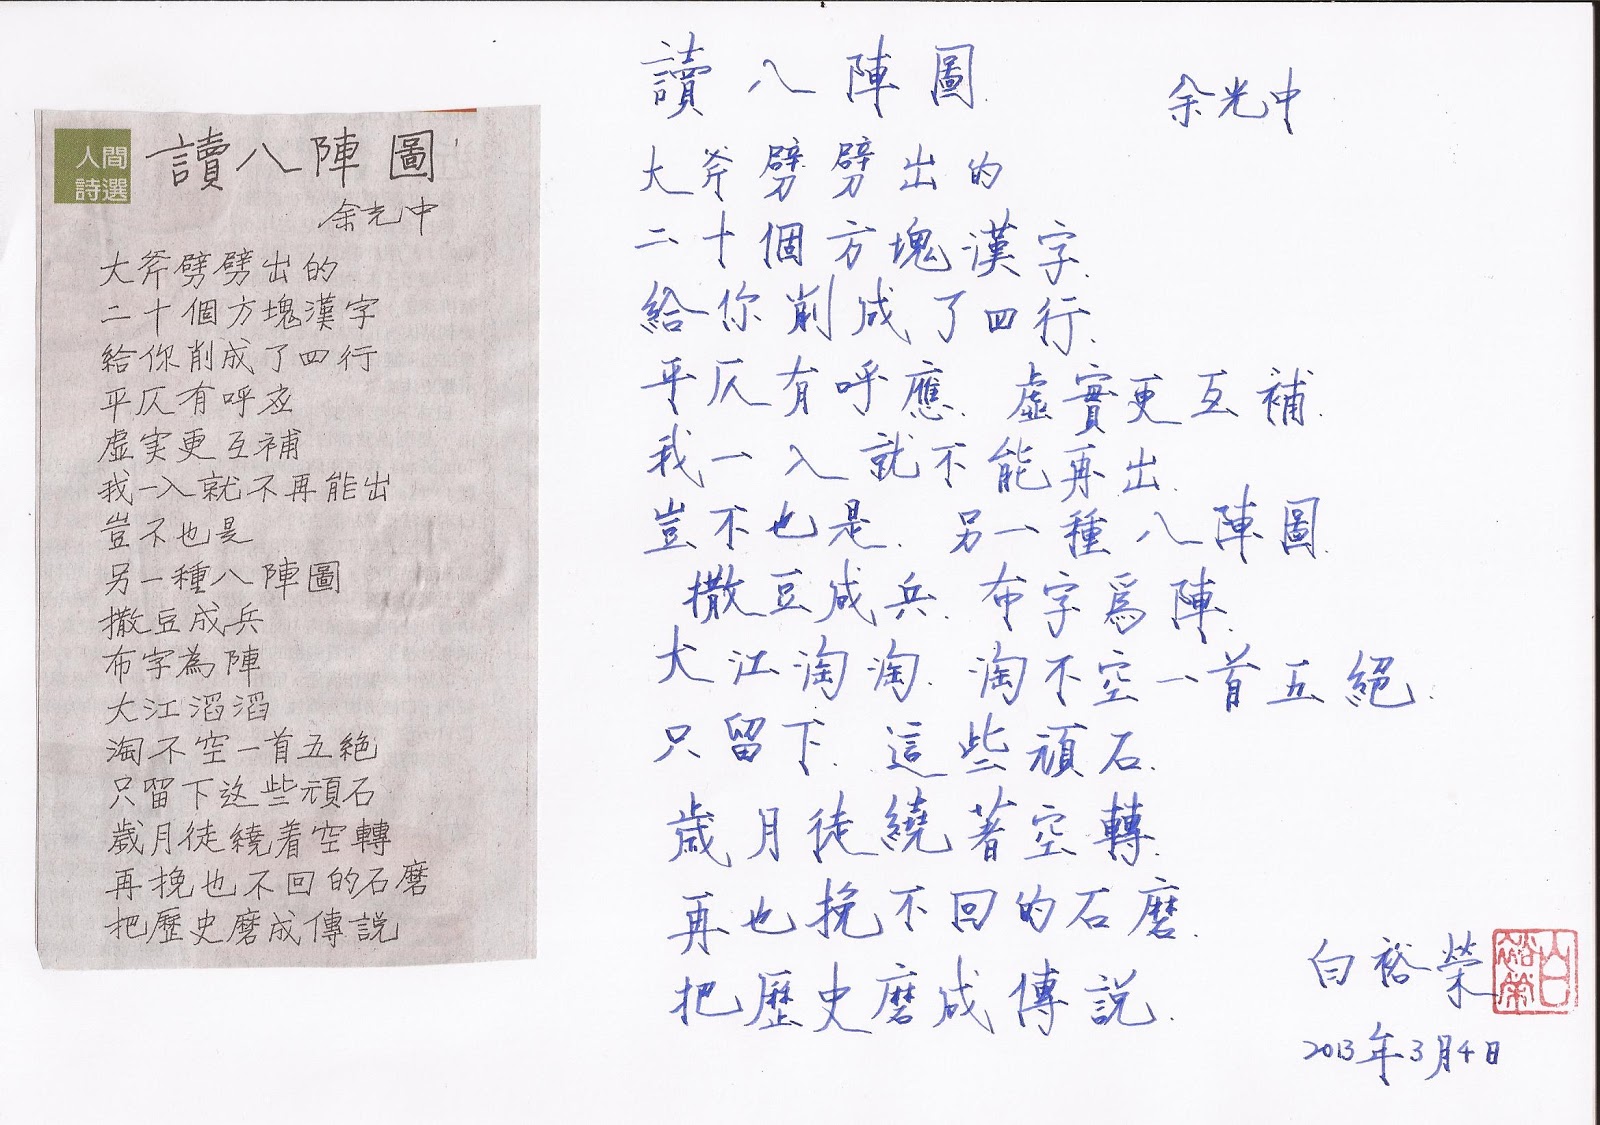 人間
詩選
讀八陣圖
余光中
大斧劈劈出的
二十個方塊漢字
給你削成了四行
平仄有呼应
虛実更互補
我一入就不再能出
豈不也是
另一種八陣圖
撒豆成兵
布字為陣
大江滔滔
淘不空一首五絕
只留下这些頑石
歲月徒繞着空轉
再挽也不回的石磨
把歷史磨成傳說
讀八陣圖 余光中
大斧劈劈出的
二十個方塊漢字.
給你削成了四行.
平仄有呼應. 虛實更互補.
我一入就不能再出.
豈不也是. 另一種八陣圖.
撒豆成兵. 布字爲陣.
大江淘淘. 淘不空一首五絕.
只留下. 這些頑石.
歲月徒繞著空轉.
再也挽不回的石磨.
把歷史磨成傳說.
白裕榮
2013年3月4日